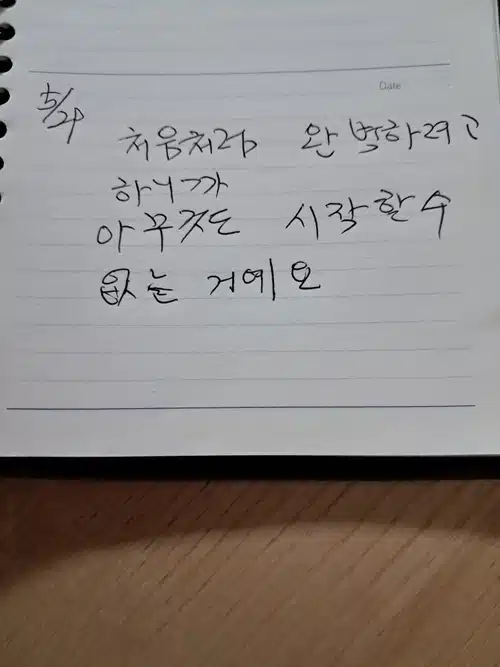 Date
5/29
처음처럼 완벽하려고
하니까
아무것도 시작할수
없는 거예요